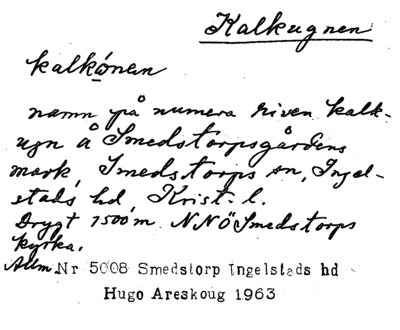 Kalkugnen
kalkónen
namn på numera riven kalk-
ugn å Smedstorpsgårdens
mark, Smedstorps sn, Ingel-
stads hd, Krist. l.
Drygt 1500 m. NNÖ Smedstorps
kyrka.
Allm. Nr 5008 Smedstorp Ingelstads hd
Hugo Areskoug 1963